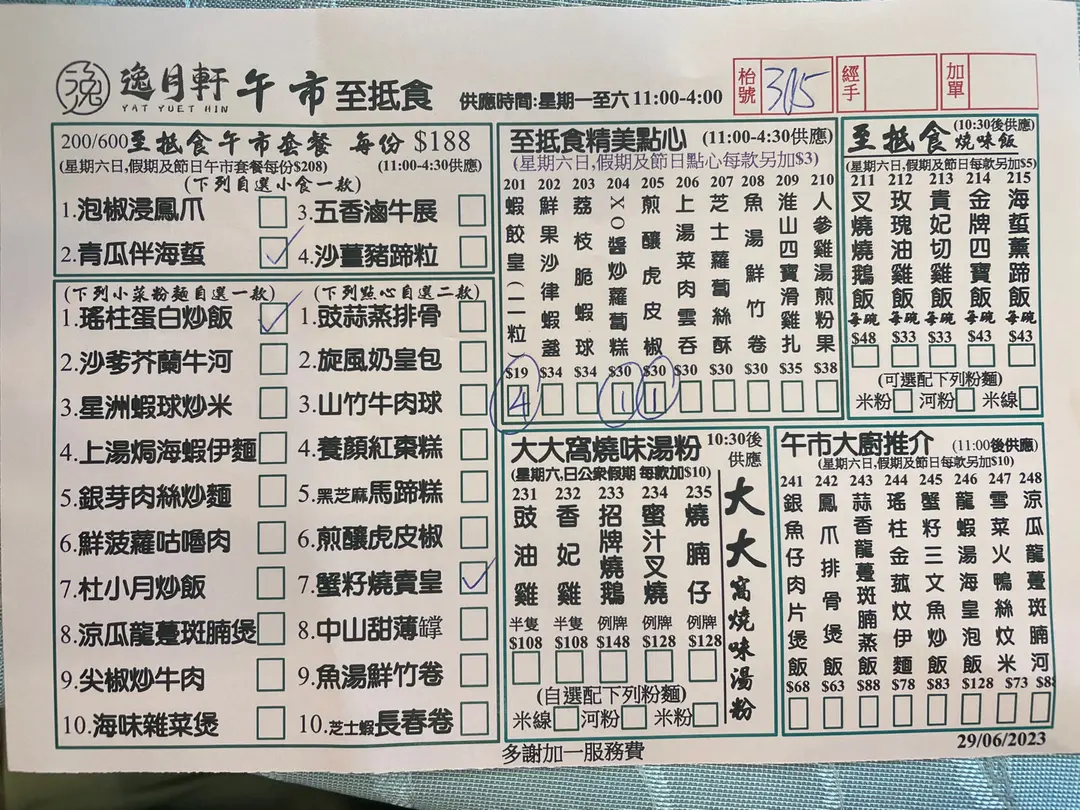 逸 逸月軒 午市 至抵食 供應時間:星期一至六 11:00-4:00
YAT YUET HIN
枱號 315 經手 加單
200/600至抵食午市套餐 每份 $188
(星期六日,假期及節日午市套餐每份$208) (11:00-4:30供應)
(下列自選小食一款)
1.泡椒浸鳳爪 3.五香滷牛展
2.青瓜伴海蜇 4.沙薑豬蹄粒
(下列小菜粉麵自選一款) (下列點心自選二款)
1.瑤柱蛋白炒飯 1.豉蒜蒸排骨
2.沙爹芥蘭牛河 2.旋風奶皇包
3.星洲蝦球炒米 3.山竹牛肉球
4.上湯焗海蝦伊麵 4.養顏紅棗糕
5.銀芽肉絲炒麵 5.黑芝麻馬蹄糕
6.鮮菠蘿咕嚕肉 6.煎釀虎皮椒
7.杜小月炒飯 7.蟹籽燒賣皇
8.涼瓜龍躉斑腩煲 8.中山甜薄罉
9.尖椒炒牛肉 9.魚湯鮮竹卷
10.海味雜菜煲 10.芝士蝦長春卷
至抵食精美點心 (11:00-4:30供應)
(星期六日,假期及節日點心每款另加$3)
201 蝦餃皇(一粒) $19 4
202 鮮果沙律蝦盞 $34
203 荔枝脆蝦球 $34
204 XO醬炒蘿蔔糕 $30 1
205 煎釀虎皮椒 $30 1
206 上湯菜肉雲吞 $30
207 芝士蘿蔔絲酥 $30
208 魚湯鮮竹卷 $30
209 淮山四寶滑雞扎 $35
210 人參雞湯煎粉果 $38
至抵食 燒味飯 (10:30後供應)
(星期六日,假期及節日每款另加$5)
211 叉燒燒鵝飯 每碗 $48
212 玫瑰油雞飯 每碗 $33
213 貴妃切雞飯 每碗 $33
214 金牌四寶飯 每碗 $43
215 海蜇薰蹄飯 每碗 $43
(可選配下列粉麵)
米粉 河粉 米線
大大窩燒味湯粉 10:30後供應
(星期六,日公眾假期 每款加$10)
231 豉油雞 半隻 $108
232 香妃雞 半隻 $108
233 招牌燒鵝 例牌 $148
234 蜜汁叉燒 例牌 $128
235 燒腩仔 例牌 $128
大大窩燒味湯粉
(自選配下列粉麵)
米線 河粉 米粉
午市大廚推介 (11:00後供應)
(星期六日,假期及節日每款另加$10)
241 銀魚仔肉片煲飯 $68
242 鳳爪排骨煲飯 $63
243 蒜香龍躉斑腩蒸飯 $88
244 瑤柱金菰炆伊麵 $78
245 蟹籽三文魚炒飯 $83
246 龍蝦湯海皇泡飯 $128
247 雪菜火鴨絲炆米 $73
248 涼瓜龍躉斑腩河 $88
多謝加一服務費
29/06/2023